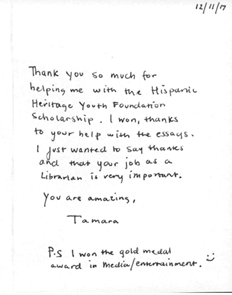 12/11/17
Thank you so much for
helping me with the Hispanic
Heritage Youth Foundation
Scholarship. I won, thanks
to your help with the essays.
I just wanted to say thanks
and that your job as a
Librarian is very important.
You are amazing,
Tamara
P.S I won the gold medal
award in media/entertainment.